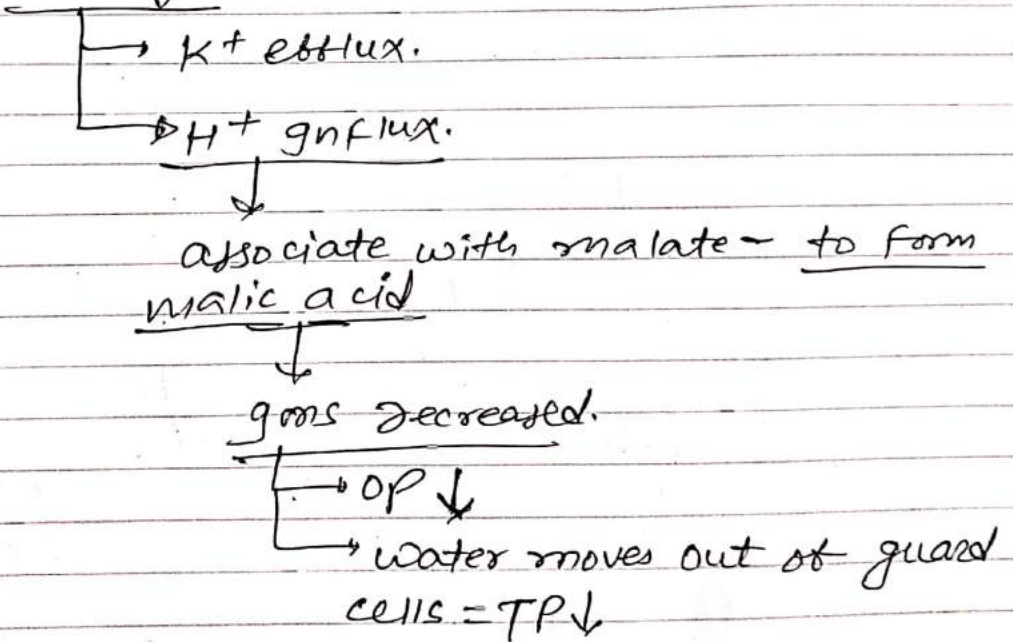 → K+ efflux.
→ H+ Influx.
↓
associate with malate - to form
malic acid
↓
Ions decreased.
→ OP ↓
→ water moves out of guard
cells = TP↓